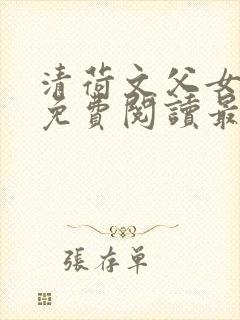 清荷文父女
免費閱讀最
張存單